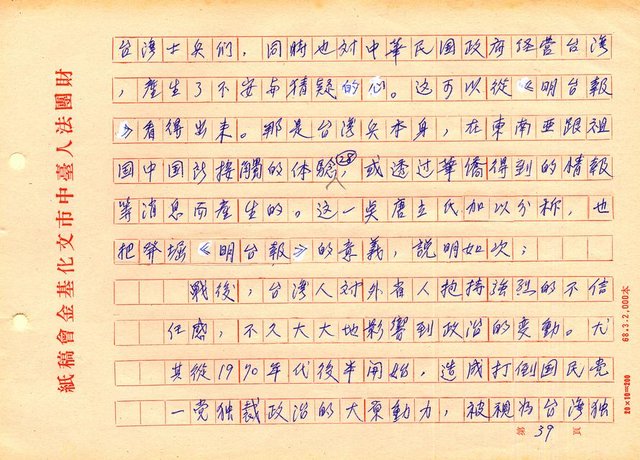 台湾士兵们，同時也対中華民国政府经营台湾
，產生了不安与猜疑的心。这可以從《明台報
》看得出来。那是台湾兵本身，在東南亜跟祖
国中国所接觸的体驗，㉘或透过華僑得到的情報
等消息而產生的。这一点唐立氏加以分析，也
把發堀《明台報》的意義，説明如次：
戦後，台湾人対外省人抱持強烈的不信
任感，不久大大地影響到政治的変動。尤
其從1970年代後半開始，造成打倒国民党
一党独裁政治的大原動力，被視為台湾独
第 39 頁
財團法人臺中市文化基金會稿紙
68.3.2,000本
20×10=200